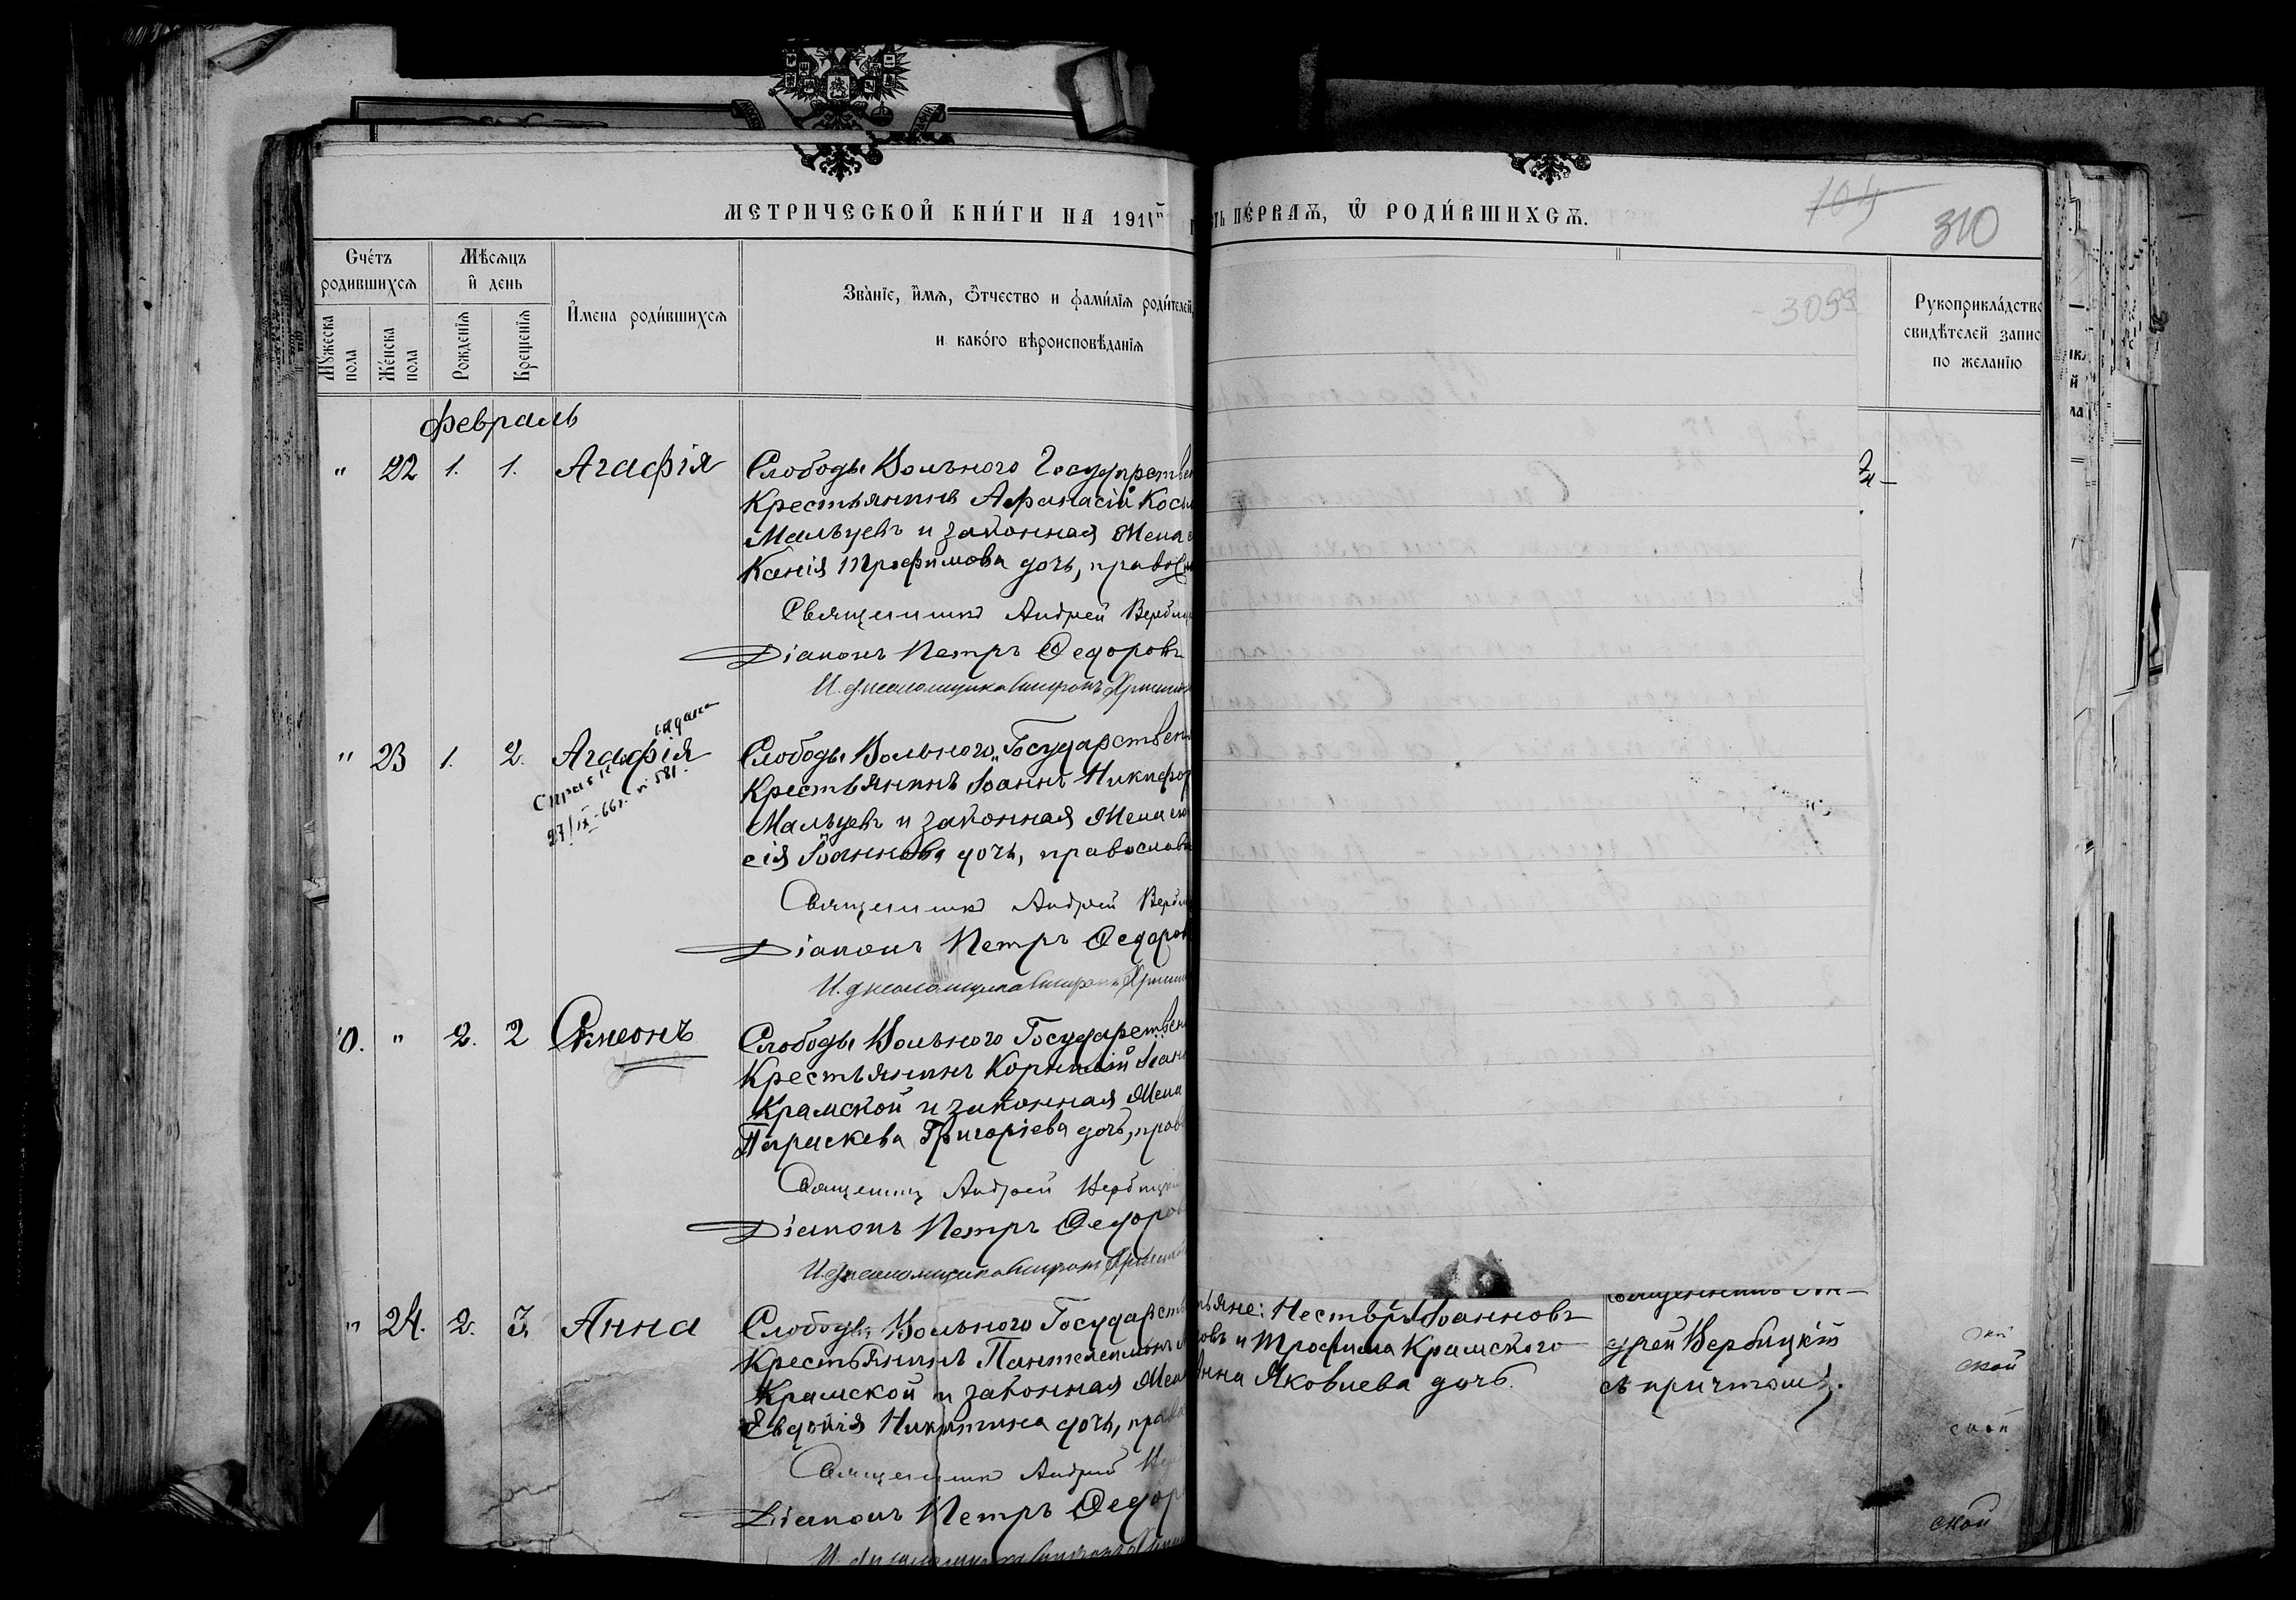 МЕТРИЧЕСКОЙ КНИ́ГИ НА 1911
ПЕ́РВАѦ, Ѿ РОДИ́ВШИХСѦ.
104
310
Сче́тъ родившихсѧ
Мѣсѧцъ и день
Мꙋжеска пола
Же́нска пола
Рожденїѧ
Крещенїѧ
И҆мена роди́вшихсѧ
Зва́нїе, и҆мѧ, ѻ҆́тчество и фами́лїѧ роди́телей,
и како́го вѣроисповѣ́данїѧ
Рукоприкла́дство
свидѣ́телей запис
по жела́нїю
3093
Февраль
" 22 1. 1. Агафія
Слободы Вольного Государствен
Крестьянинъ Афанасій Косм
Мальцевъ и законная жена е
Ксенія Трофимова дочь, правосл
Священникъ Андрей Вербиц
Діаконъ Петръ Ѳедоровъ
И. д. псаломщика
" 23 1. 2. Агафія
выдана
Справка
27/IX-66г. № 581.
Слободы Вольного Государствен
Крестьянинъ Іоаннъ Никифор
Мальцевъ и законная жена
сія Іоаннова дочь, православ
Священникъ Андрей Верби
Діаконъ Петръ Ѳедоров
И. д. псаломщика
10. " 2. 2 Симеонъ
Слободы Вольного Государствен
Крестьянинъ Корнилій Іоан
Крамской и законная жена
Параскева Григоріева дочь, прав
Священникъ Андрей Вербицкі
Діаконъ Петръ Ѳедоров
И. д. псаломщика
" 24. 2. 3. Анна
Слободы Вольного Государств
Крестьянинъ Пантелеимонъ
Крамской и законная жен
Евдокія Никитина дочь, права
Священникъ Андрей
Діаконъ Петръ Ѳедор
тьяне: Несторъ Іоанновъ
овъ и Трофима Крамского
Анна Яковлева дочь.
Священникъ Ан-
дрей Вербицкій
съ причтомъ.
ской
ской
ской